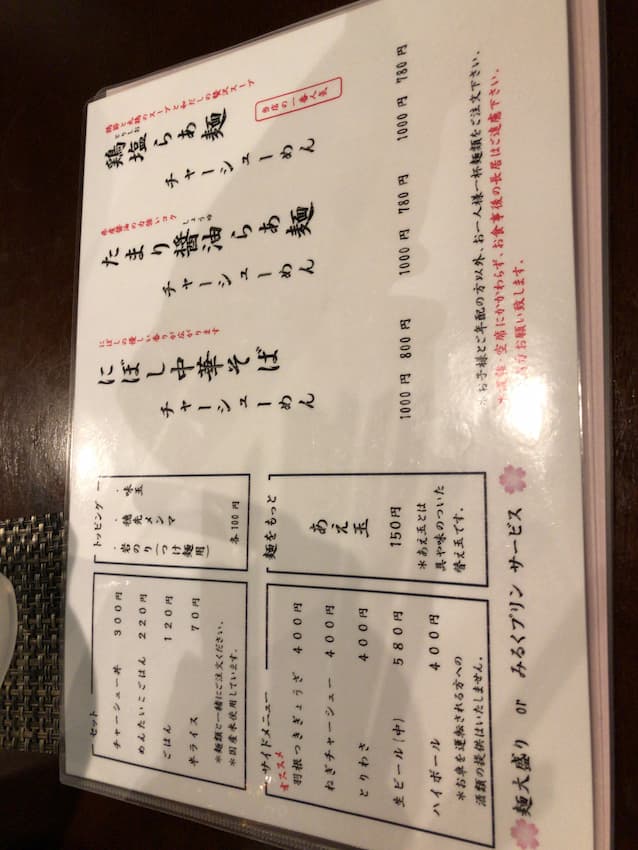 鶏節と丸鶏のスープと和だしの贅沢スープ
とりしお
鶏塩らぁ麺 780円
チャーシューめん 1000円
当店の一番人気
県産醤油の力強いコク
しょうゆ
たまり醤油らぁ麺 780円
チャーシューめん 1000円
にぼしの優しい香りが広がります
にぼし中華そば 800円
チャーシューめん 1000円
※お子様とご年配の方以外、お一人様一杯麺類をご注文下さい。
空席にかかわらず、お食事後の長居はご遠慮下さい。
お願い致します。
トッピング
・味玉
・穂先メンマ
・岩のり(つけ麺用)
各100円
麺をもっと
あえ玉
150円
※あえ玉とは
具や味のついた
替え玉です。
セット
チャーシュー丼 300円
めんたいこごはん 220円
ごはん 120円
半ライス 70円
※麺類と一緒にご注文ください。
※国産米使用しています。
サイドメニュー
オススメ
羽根つきぎょうざ 400円
ねぎチャーシュー 400円
とりわさ 400円
生ビール(中) 580円
ハイボール 400円
※お車を運転される方への
酒類の提供はいたしません。
麺大盛り or みるくプリン サービス